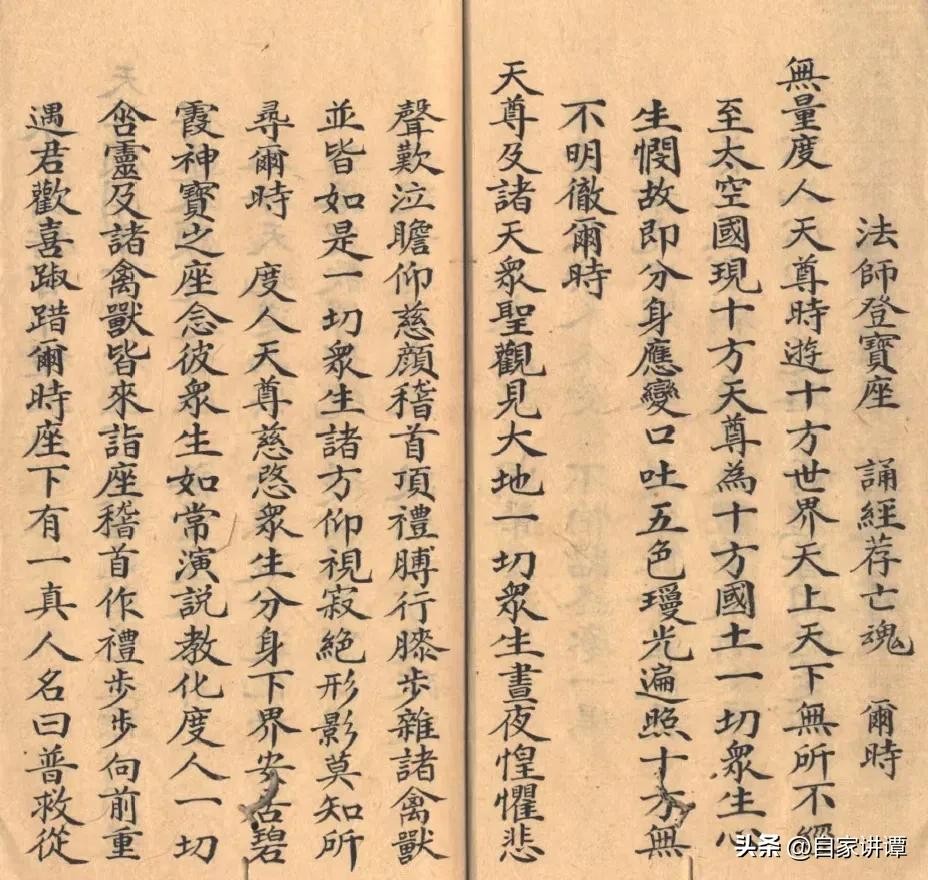 法師登寶座 誦經荐亡魂 爾時
無量度人天尊時遊十方世界天上天下無所不經
至太空國現十方天尊為十方國土一切衆生心
生憫故即分身應變口吐五色瓊光遍照十方無
不明徹爾時
天尊及諸天衆聖觀見大地一切衆生晝夜惶懼悲
聲歎泣瞻仰慈顏稽首頂禮膊行膝步雜諸禽獸
並皆如是一切衆生諸方仰視寂絕形影莫知所
尋爾時 度人天尊慈愍衆生分身下界安居碧
霞神寶之座念彼衆生如常演説教化度人一切
含靈及諸禽獸皆來詣座稽首作禮步步向前重
遇君歡喜踧踖爾時座下有一真人名曰普救從
头条 @自家讲谭